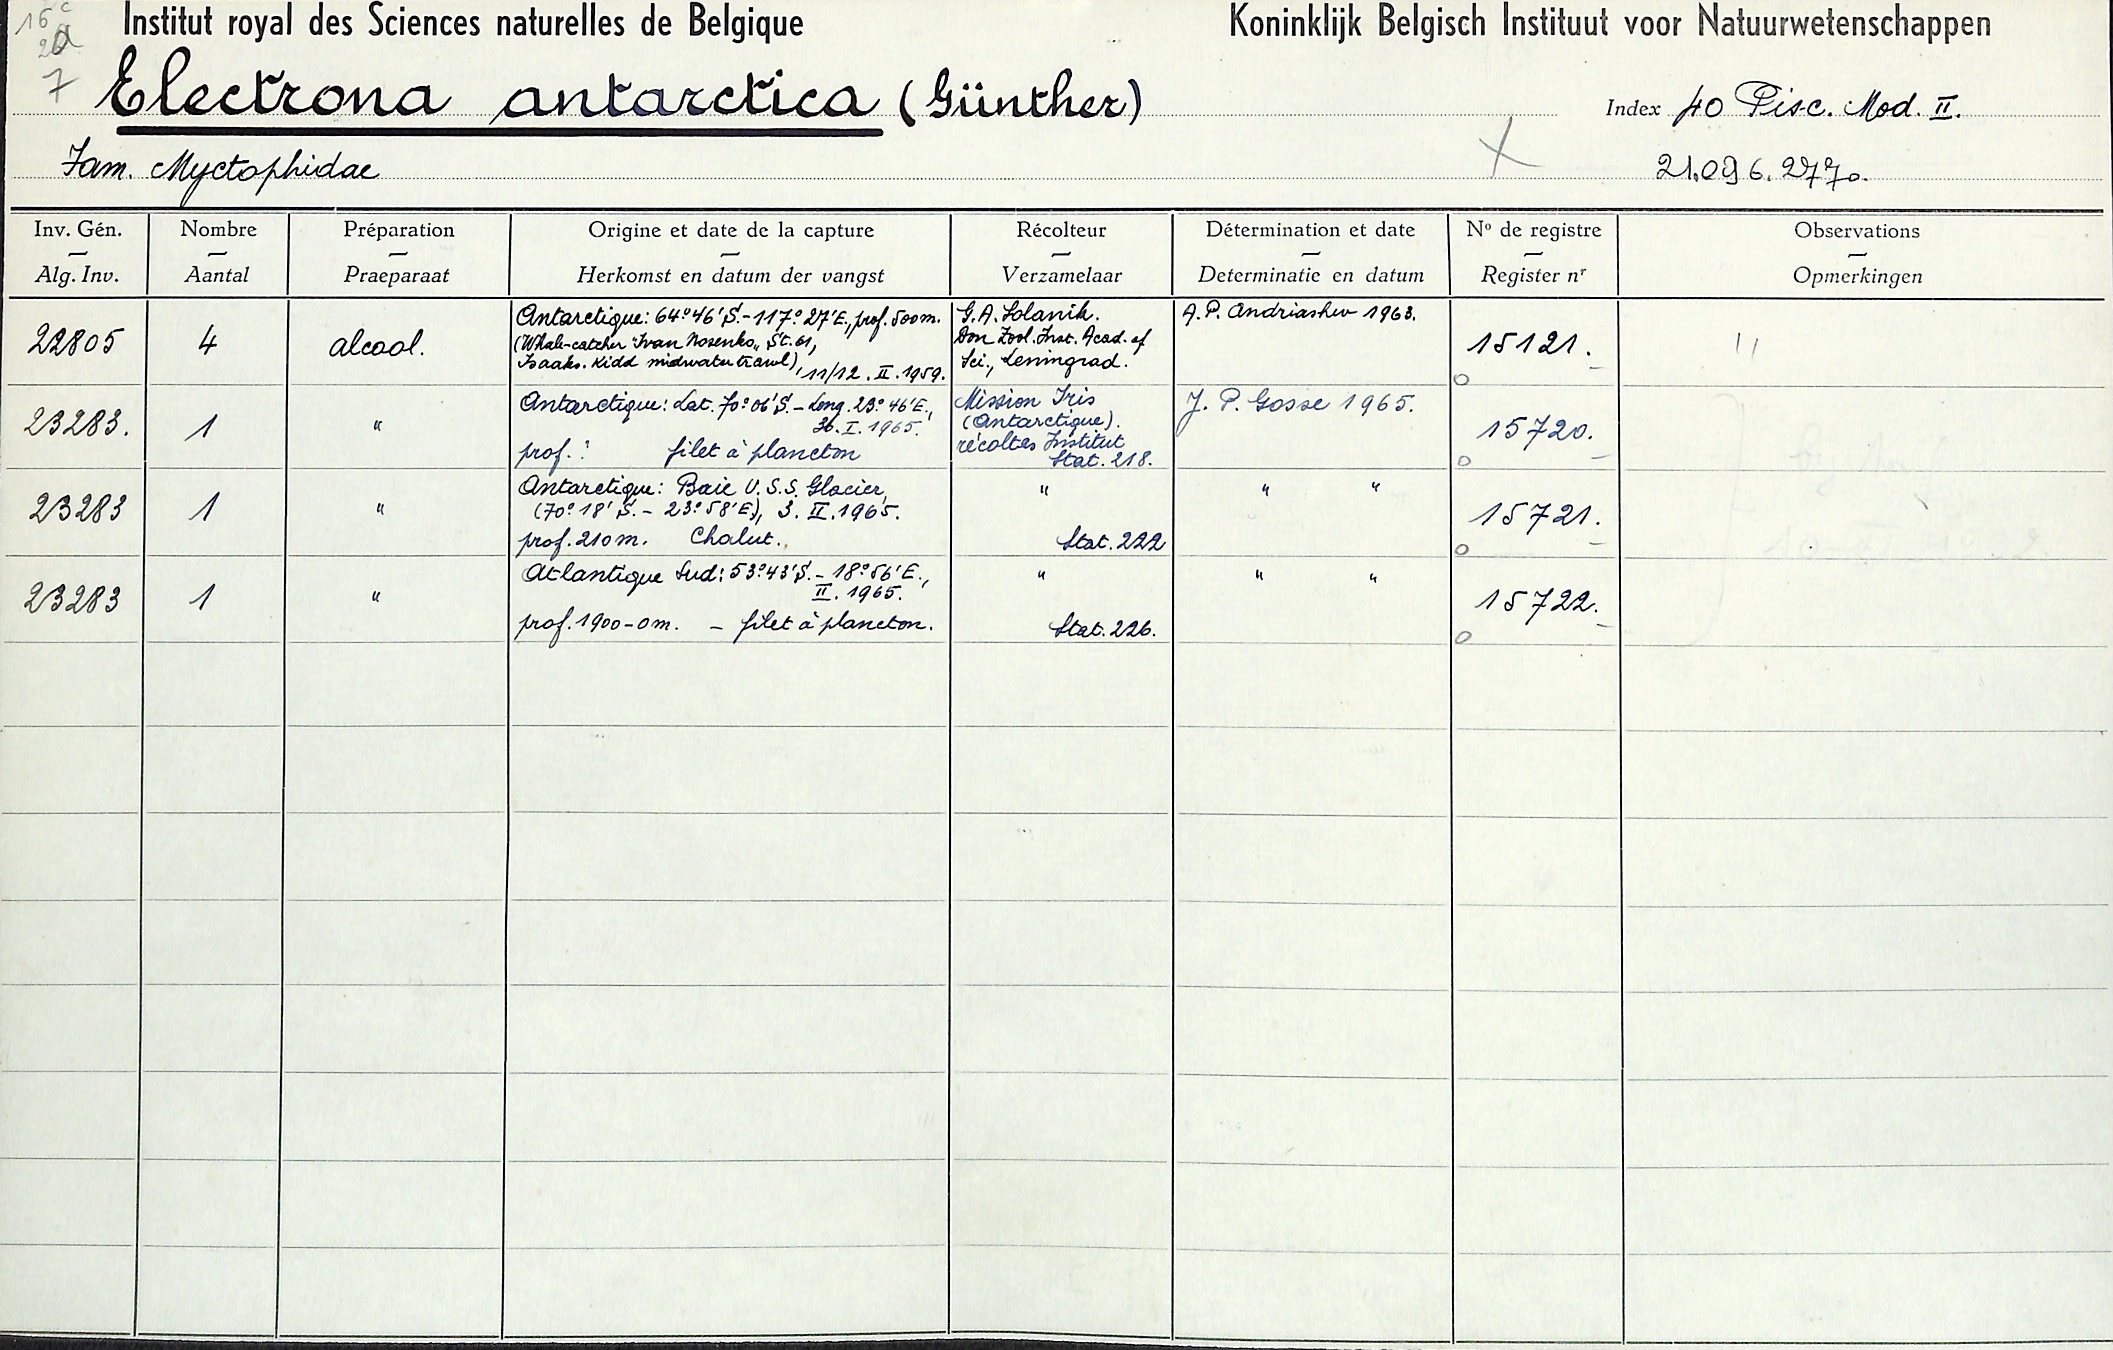 16 c
2a
7
Institut royal des Sciences naturelles de Belgique
Koninklijk Belgisch Instituut voor Natuurwetenschappen
Electrona antarctica (Günther)
Index 40 Pisc. Mod. II.
Fam. Myctophidae
X
21.096.2770.
Inv. Gén. — Alg. Inv.
Nombre — Aantal
Préparation — Praeparaat
Origine et date de la capture — Herkomst en datum der vangst
Récolteur — Verzamelaar
Détermination et date — Determinatie en datum
Nº de registre — Register nr
Observations — Opmerkingen
22805
4
alcool.
Antarctique: 64°46'S.-117°27'E., prof. 500m.
(Whale-catcher "Ivan Nosenko" St. 61,
Isaaks. Kidd midwater trawl), 11/12. II. 1959.
G.A. Solanik.
Don Zool. Inst. Acad. of
Sci., Leningrad.
A.P. Andriashev 1963.
15121.
23283.
1
"
Antarctique: Lat. 70°06'S. - Long. 23°46'E.,
I. 1965.
prof. : filet à plancton
Mission Iris
(Antarctique).
récoltes Institut
Stat. 218.
J. P. Gosse 1965.
15720.
23283
1
"
Antarctique: Baie U.S.S. Glacier,
(70°18'S. - 23°58'E), 3. II. 1965.
prof. 210m. Chalut.
"
Stat. 222
" "
15721.
23283
1
"
Atlantique Sud: 53°43'S. - 18°56'E.,
II. 1965.
prof. 1900-0m. - filet à plancton.
"
Stat. 226.
" "
15722.